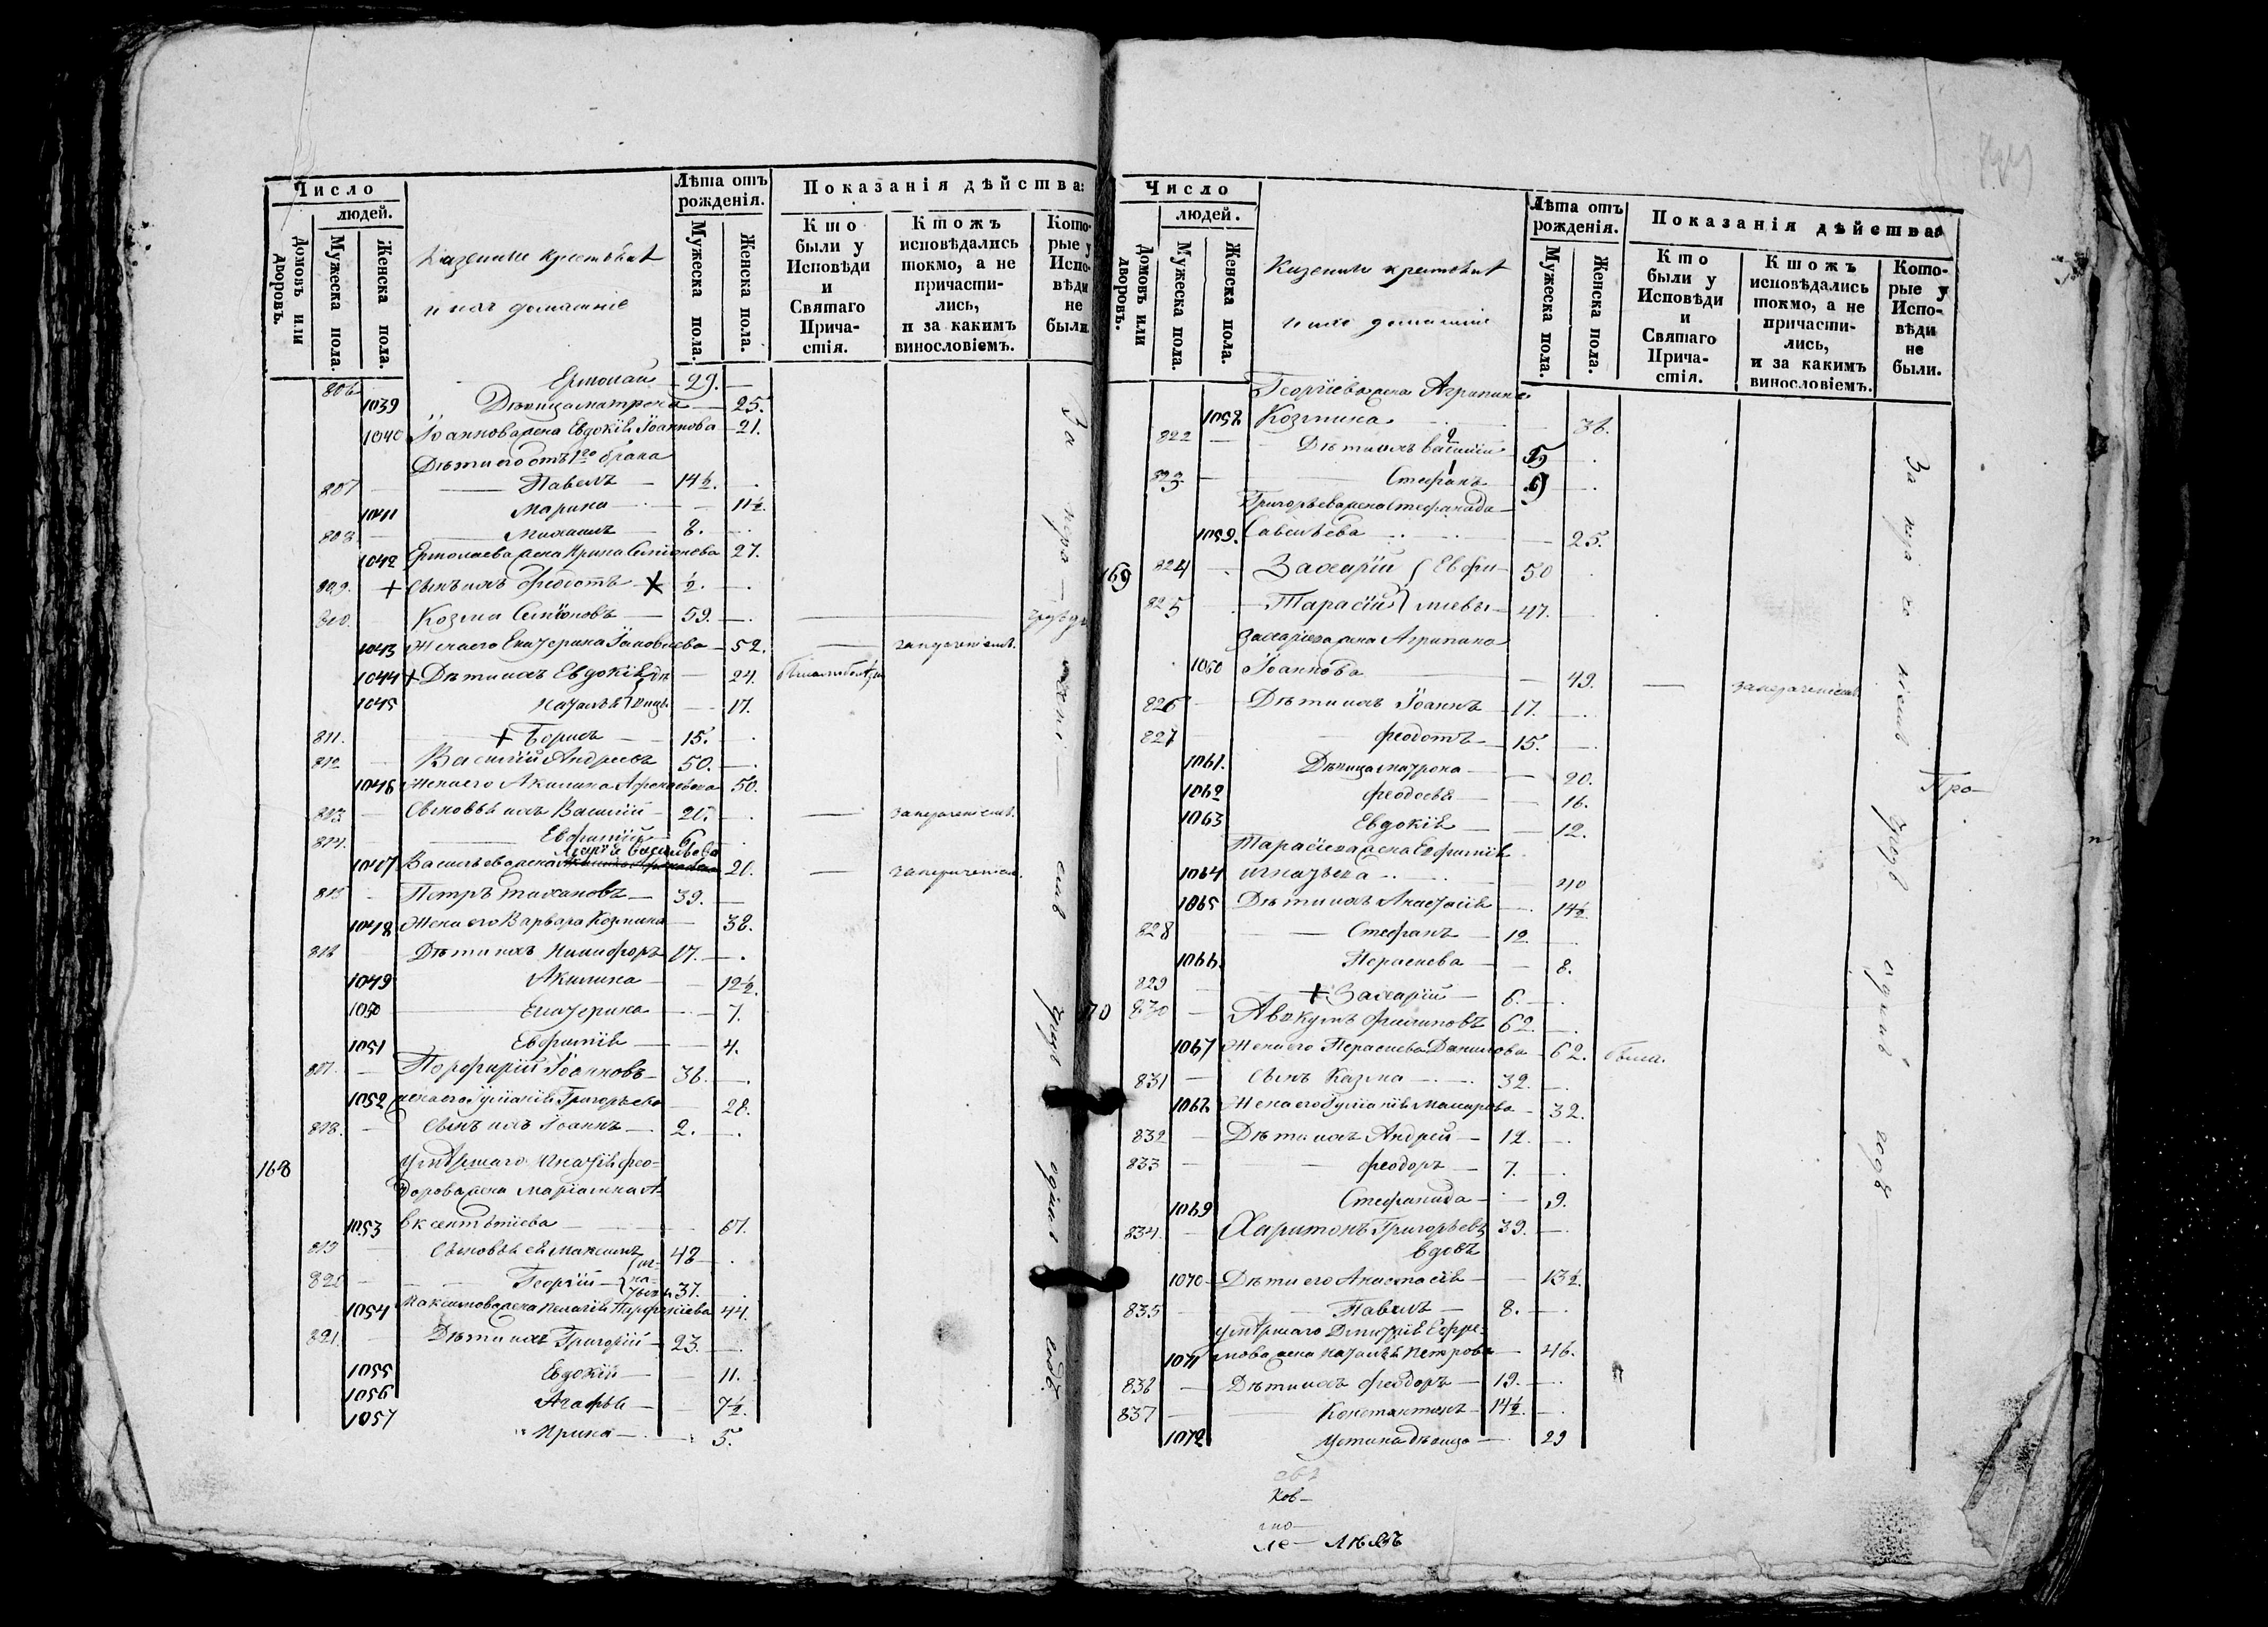 Число
людей.
Домовъ или дворовъ.
Мужеска пола.
Женска пола.
Казенные крестьяне
и ихъ домашніе
Лѣта отъ рожденія.
Мужеска пола.
Женска пола.
Показанія дѣйства:
Кто были у Исповѣди и Святаго Прича-стія.
Ктожъ исповѣдались токмо, а не причасти-лись, и за какимъ винословіемъ.
Кото-рые у Испо-вѣди не были.
806 Ермолай — 29. —
1039 Дѣвица Матрона — 25.
1040 Іоаннова жена Евдокія Іоаннова — 21.
Дѣти его отъ 1го брака
807 Павелъ — 14½.
1041 Марина — 11½.
808 Михаилъ — 8.
1042 Ермолаева жена Ирина Симеонова 27.
809. + Сынъ ихъ Феодотъ ½.
810. Козма Симеоновъ — 59.
1043 Жена его Екатерина Іаковлева — 52.
1044 + Дѣти ихъ Евдокія — 24.
1045 Наталья 17.
811. + Борисъ — 15.
812 Василій Андреевъ 50.
1046 Жена его Акилина 50.
813 Сыновья ихъ Василій — 20.
814. Евфимій — 6
1047 Васильева жена Марія Васильева 20.
815 Петръ — 39.
1048 Жена его Варвара Козмина — 38.
816 Дѣти ихъ Никифоръ 17.
1049 Акилина — 12½.
1050 Екатерина — 7.
1051 Евфимія — 4.
817. Порфирій Іоанновъ — 38.
1052 жена его Іуліанія Григорьева 28.
818. Сынъ ихъ Іоаннъ — 2.
168 Умершаго Игнатія Фео-
дорова жена Маріамна А-
1053 вксентьева — 67.
819 Сыновья ея Максимъ 48
820 Георгій — 37.
1054 Максимова жена Пелагія Порфиріева 44.
821. Дѣти ихъ Григорій — 23.
1055 Евдокія — 11.
1056 Агафья — 7½.
1057 Ирина — 5.
Число
людей.
Домовъ или дворовъ.
Мужеска пола.
Женска пола.
Казенные крестьяне
и ихъ домашніе
Лѣта отъ рожденія.
Мужеска пола.
Женска пола.
Показанія дѣйства:
Кто были у Исповѣди и Святаго Прича-стія.
Ктожъ исповѣдались токмо, а не причасти-лись, и за какимъ винословіемъ.
Кото-рые у Испо-вѣди не были.
Георгіева жена Агрипина
1058 Козмина 38.
822 Дѣти ихъ Василій
823 Стефанъ
Григорьева жена Стефанида
1059. Савельева 25.
169 824 Захарій Евфи- 50
825 Тарасій міевы — 47.
Захаріева жена Агрипина
1060 Іоаннова 49.
826 Дѣти ихъ Іоаннъ — 17.
827 Феодотъ — 15.
1061. Дѣвица Матрона — 20.
1062 Феодосія — 16.
1063 Евдокія — 12.
Тарасіева жена Евфимія
1064 Игнатьева 40
1065 Дѣти ихъ Анастасія — 14½
828 Стефанъ — 12.
1066. Параскева — 8.
829 + Захарій — 6.
170 830 Аввкумъ Филиповъ 62.
1067 Жена его Параскева Данилова — 62. была.
831 Сынъ Казма — 32.
1068 Жена его Іуліанія Макарова — 32.
832 Дѣти ихъ Андрей — 12.
833 Феодоръ — 7.
1069 Стефанида — 9.
834. Харитонъ Григорьевъ 39.
вдовъ
1070 Дѣти его Анастасія — 13½.
835 Павелъ — 8.
умершаго Димитрія Ефре-
1071 мова жена Наталья Петрова — 46.
836 Дѣти ихъ Феодоръ — 19.
837 Константинъ — 14½.
1072 Устина дѣвица — 29
Про-
ков-